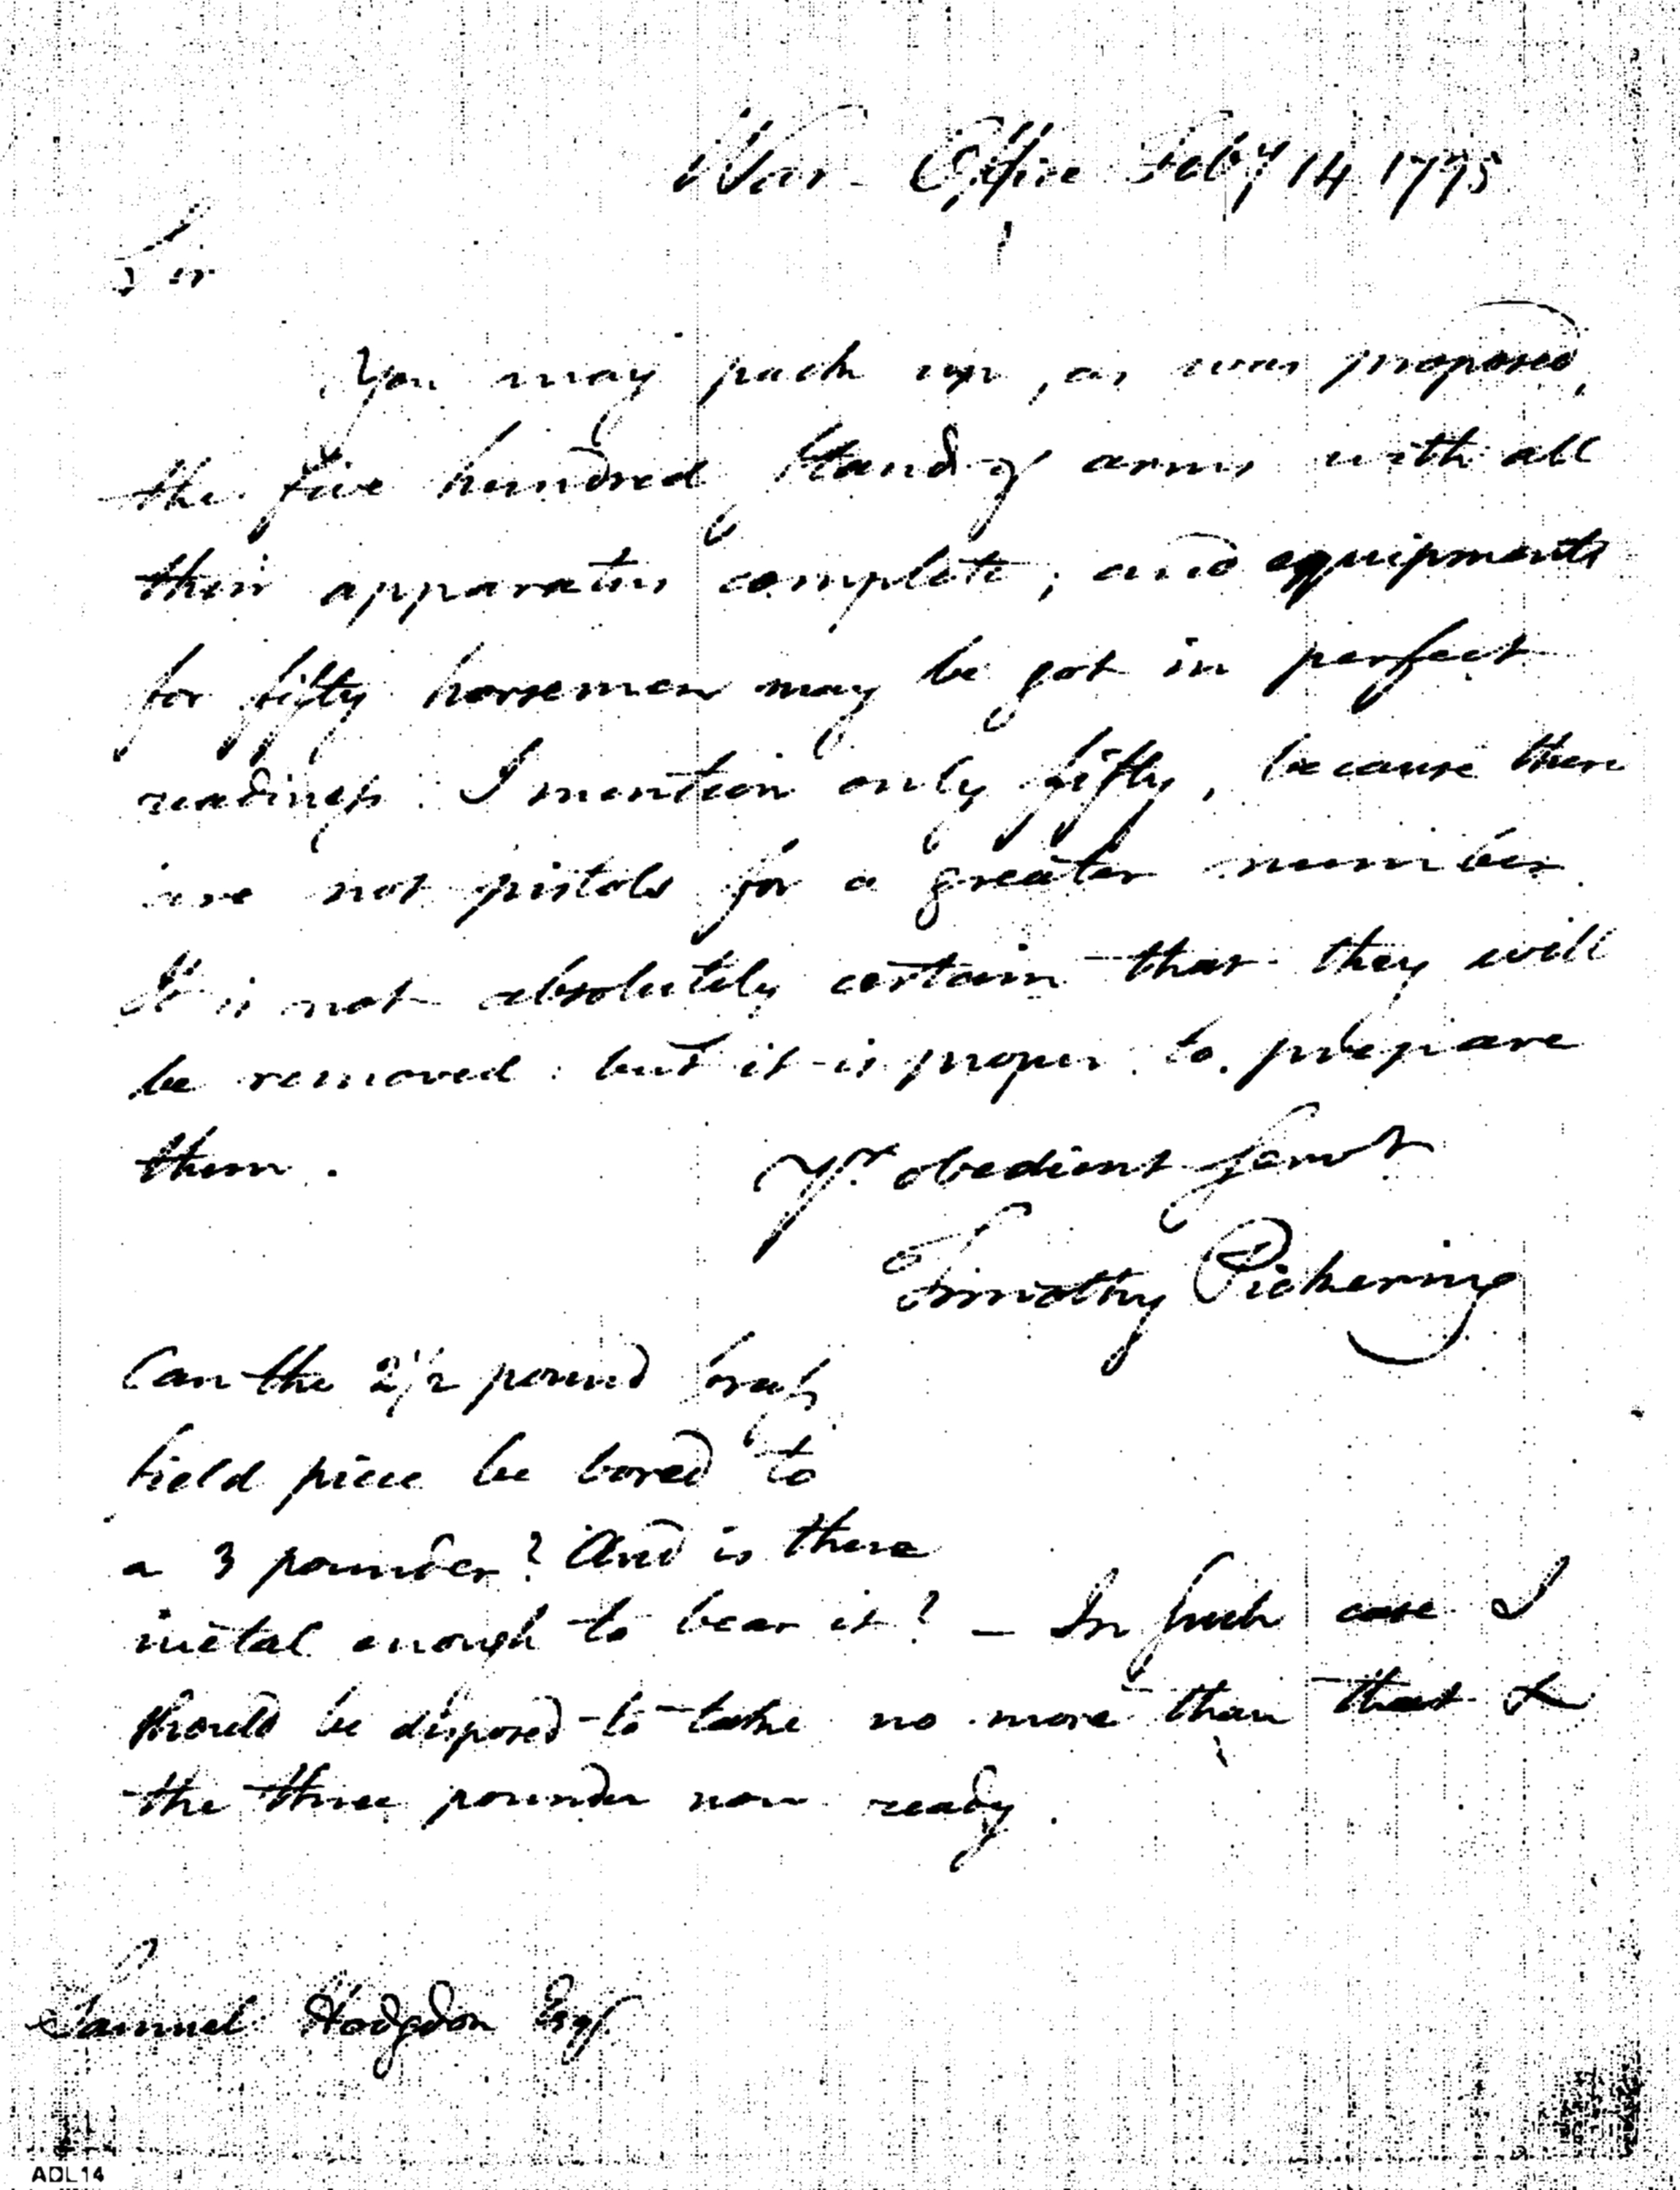 War Office Feby 14 1795
Sir
You may pack up, as was proposed,
the five hundred stand of arms with all
their apparatus complete; and equipments
for fifty horsemen may be got in perfect
readiness. I mention only fifty, because there
are not pistols for a greater number.
It is not absolutely certain that they will
be removed: but it is proper to prepare
them.
Yr obedient servt
Timothy Pickering
Can the 2½ pound brass
field piece be bored to
a 3 pounder? And is there
metal enough to bear it? - In such case I
should be disposed to take no more than that &
the three pounder now ready.
Samuel Hodgdon Esqr
ADL14